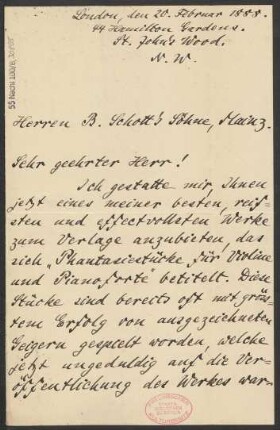 London, den 20. Februar 1888.
44 Hamilton Gardens.
St. John's Wood.
N. W.
Herren B. Schott's Söhne, Mainz.
Sehr geehrter Herr!
Ich gestatte mir, Ihnen
jetzt eines meiner besten, reif-
sten und effectvollsten Werke
zum Verlage anzubieten, das
sich „Phantasiestücke für Violine
und Pianoforte" betitelt. Diese
Stücke sind bereits oft mit gröss-
tem Erfolg von ausgezeichneten
Geigern gespielt worden, welche
jetzt ungeduldig auf die Ver-
öffentlichung des Werkes war-